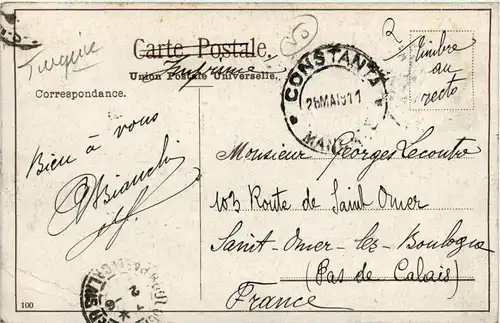 Turquie
Carte Postale.
Imprimé
Union Postale Universelle.
Correspondance.
CONSTANTA
26MAI911
2
Timbre
au
recto
Bien à vous
Bianchi
Monsieur Georges Lecontre
103 Route de Saint Omer
Sanit-Omer-lez-Boulogne
(Pas de Calais)
France
100